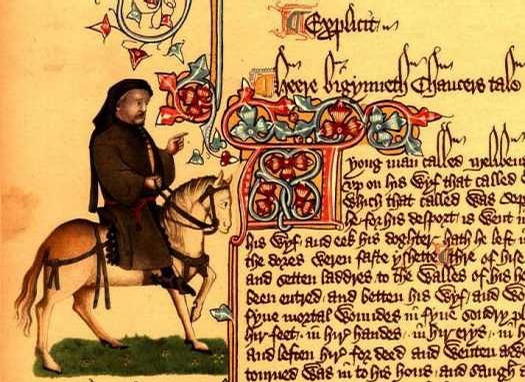 Explicit
Heere bigynneth Chaucers tale
A yong man called
up on his wyf that called
Which that called was
he for his desport is went
his wyf and eek his doghter hath he left
the dores weren faste yshette thre of hise
and setten laddres to the walles of his
been entred and betten his wyf and
fyve mortal woundes in fyve sondry
hir feet in hir handes in hir erys in
and leften hir for deed and wenten
tourned was in to his hous and saugh